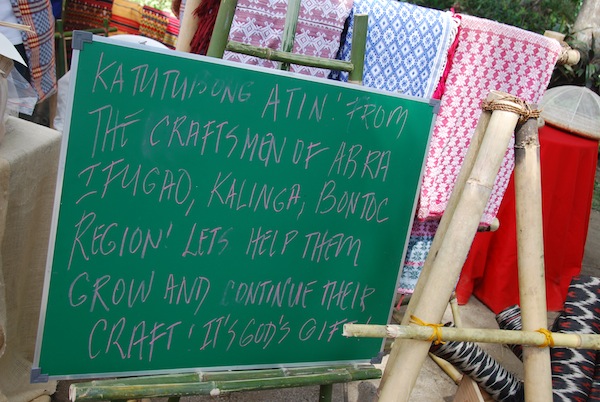 KATUTUBONG ATIN! FROM
THE CRAFTSMEN OF ABRA
IFUGAO; KALINGA, BONTOC
REGION! LETS HELP THEM
GROW AND CONTINUE THEIR
CRAFT! IT'S GOD'S